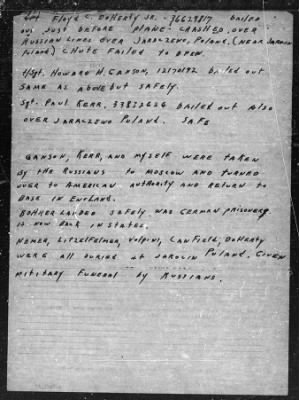 Sgt Floyd C. Doherty Jr. - 36629817 bailed
out just before plane crashed, over
Russian lines over Jaraczewo, Poland, (near Jarocin
Poland) Chute failed to open.
T/Sgt. Howard H. Ganson, 12170192 bailed out
same as above but safely.
Sgt. Paul Kerr, 33832626 bailed out also
over Jaraczewo Poland. Safe
Ganson, Kerr, and myself were taken
by the Russians to Moscow and turned
over to American authority and return to
base in England.
landed safely was German prisoner
is now back in states.
Nemer, Litzelfelner, Volpini, Canfield, Doherty
were all buried at Jarocin Poland. Given
military funeral by Russians.